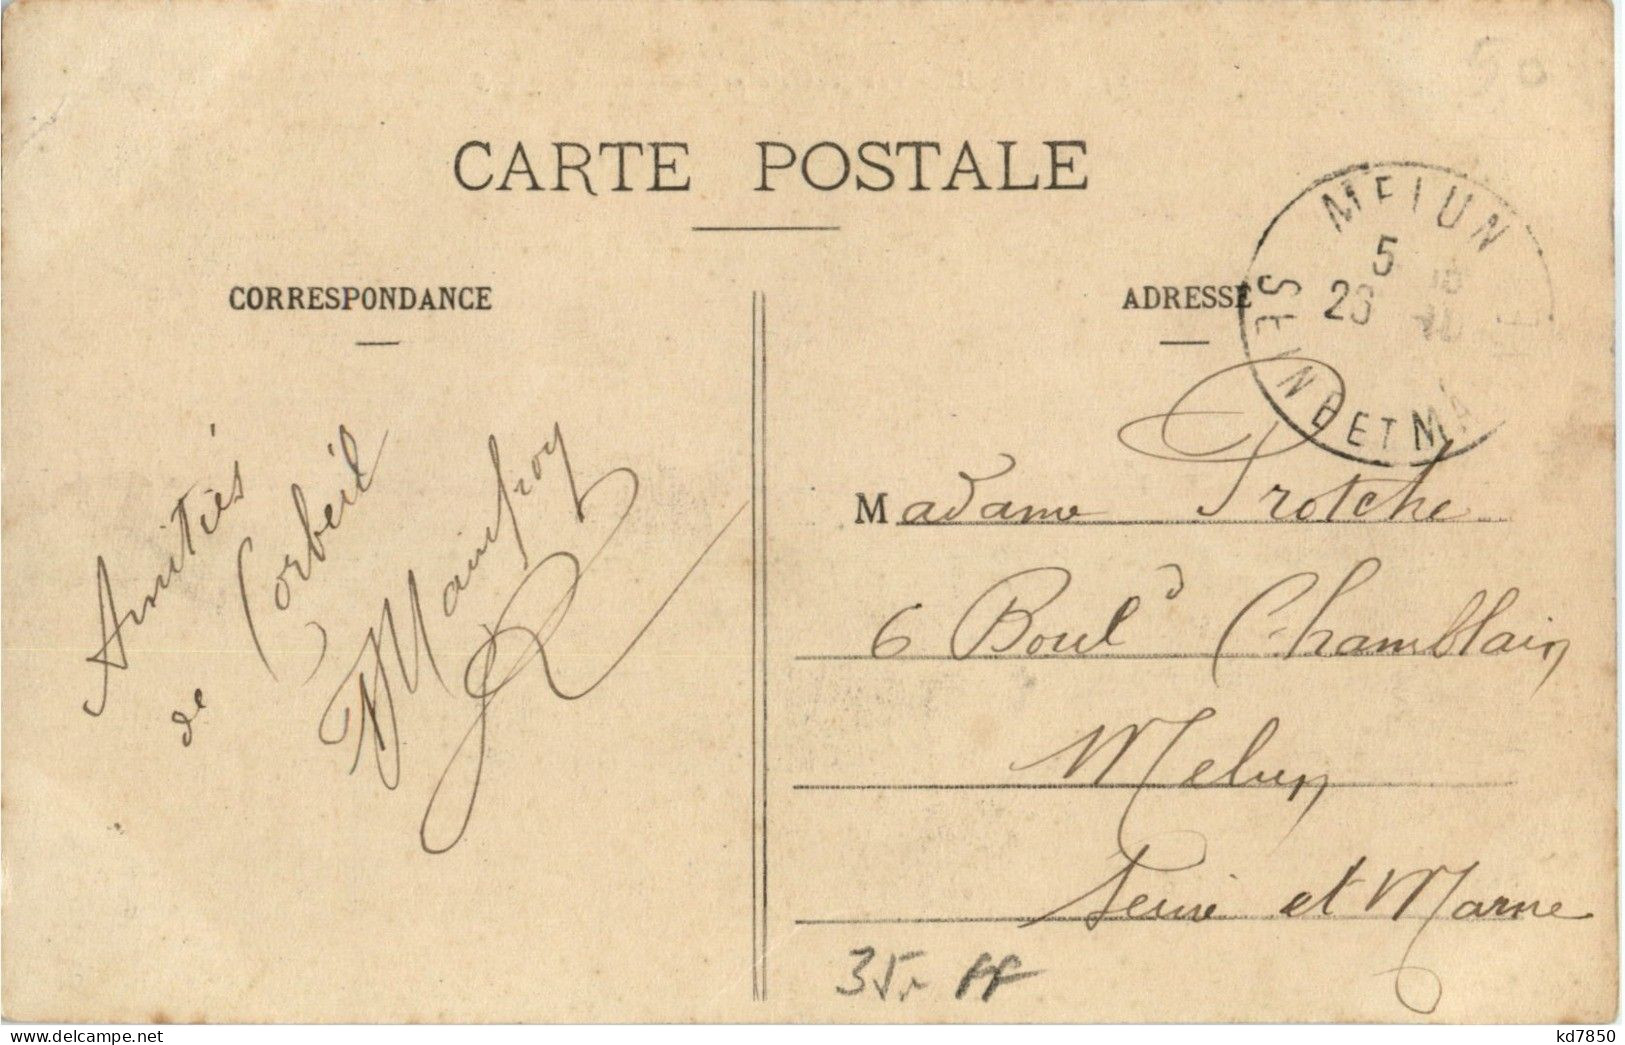 50
CARTE POSTALE
CORRESPONDANCE
ADRESSE
MELUN
5
26
SEINE ET MA
Amitiés
de Corbeil
Mainfroy
Madame Protche
6 Boul^d Chamblain
Melun
Seine et Marne
35
kd7850